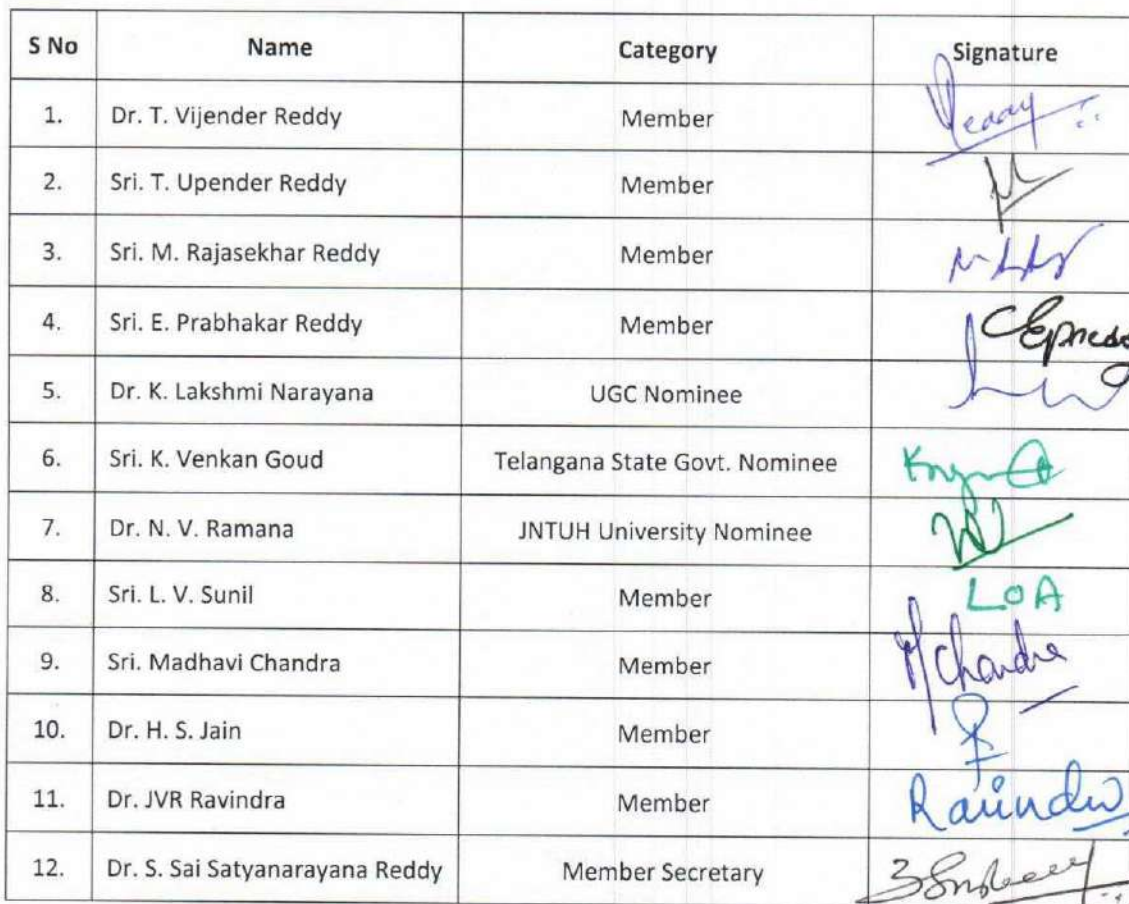 S No Name Category Signature
1. Dr. T. Vijender Reddy Member Reddy
2. Sri. T. Upender Reddy Member
3. Sri. M. Rajasekhar Reddy Member
4. Sri. E. Prabhakar Reddy Member
5. Dr. K. Lakshmi Narayana UGC Nominee
6. Sri. K. Venkan Goud Telangana State Govt. Nominee
7. Dr. N. V. Ramana JNTUH University Nominee
8. Sri. L. V. Sunil Member LOA
9. Sri. Madhavi Chandra Member M Chandra
10. Dr. H. S. Jain Member
11. Dr. JVR Ravindra Member Ravindra
12. Dr. S. Sai Satyanarayana Reddy Member Secretary